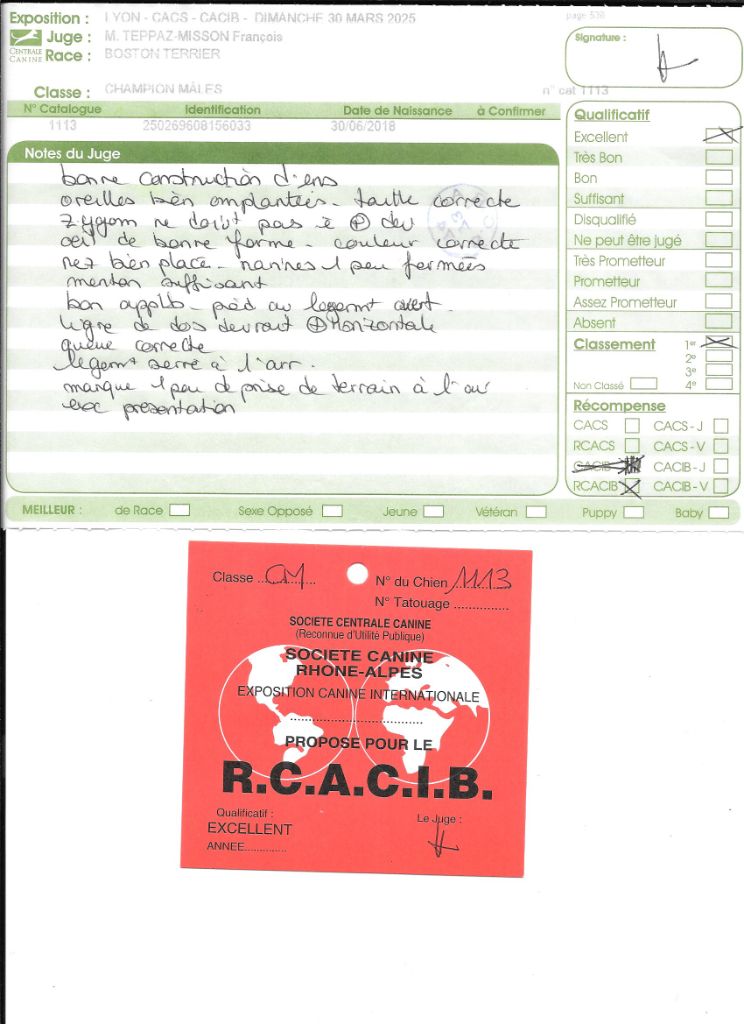 Exposition : LYON - CACS - CACIB - DIMANCHE 30 MARS 2025
page 530
CENTRALE CANINE
Juge : M. TEPPAZ-MISSON François
Race : BOSTON TERRIER
Signature :
Classe : CHAMPION MÂLES
n° cat 1113
N° Catalogue Identification Date de Naissance à Confirmer
1113 250269608156033 30/06/2018
Notes du Juge
bonne construction d'ens
oreilles bien implantées - taille correcte
zygom ne doivt pas ê ⊕ dev
oeil de bonne forme - couleur correcte
nez bien placé - narines 1 peu fermées
menton suffisant
bon applb - pied av legermt ouvert.
ligne de dos devrait ⊕ Horizontale
queue correcte
legermt serré à l'arr.
manque 1 peu de prise de terrain à l'arr
exc présentation
Qualificatif
Excellent
Très Bon
Bon
Suffisant
Disqualifié
Ne peut être jugé
Très Prometteur
Prometteur
Assez Prometteur
Absent
Classement 1er
2e
3e
Non Classé 4e
Récompense
CACS CACS - J
RCACS CACS - V
CACIB CACIB - J
RCACIB CACIB - V
MEILLEUR : de Race Sexe Opposé Jeune Vétéran Puppy Baby
Classe ... CM ...
N° du Chien 1113
N° Tatouage ...............
SOCIETE CENTRALE CANINE
(Reconnue d'Utilité Publique)
SOCIETE CANINE
RHONE-ALPES
EXPOSITION CANINE INTERNATIONALE
PROPOSE POUR LE
R.C.A.C.I.B.
Qualificatif :
EXCELLENT
ANNEE..............
Le Juge :